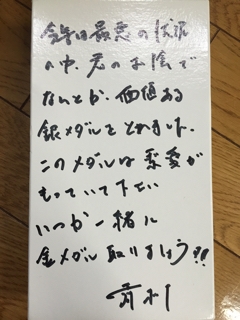 今年は最悪の状況
の中、君のお陰で
なんとか、価値ある
銀メダルをとれました。
このメダルは梨愛が
もっていて下さい
いつか一緒に
金メダル取りましょう!!